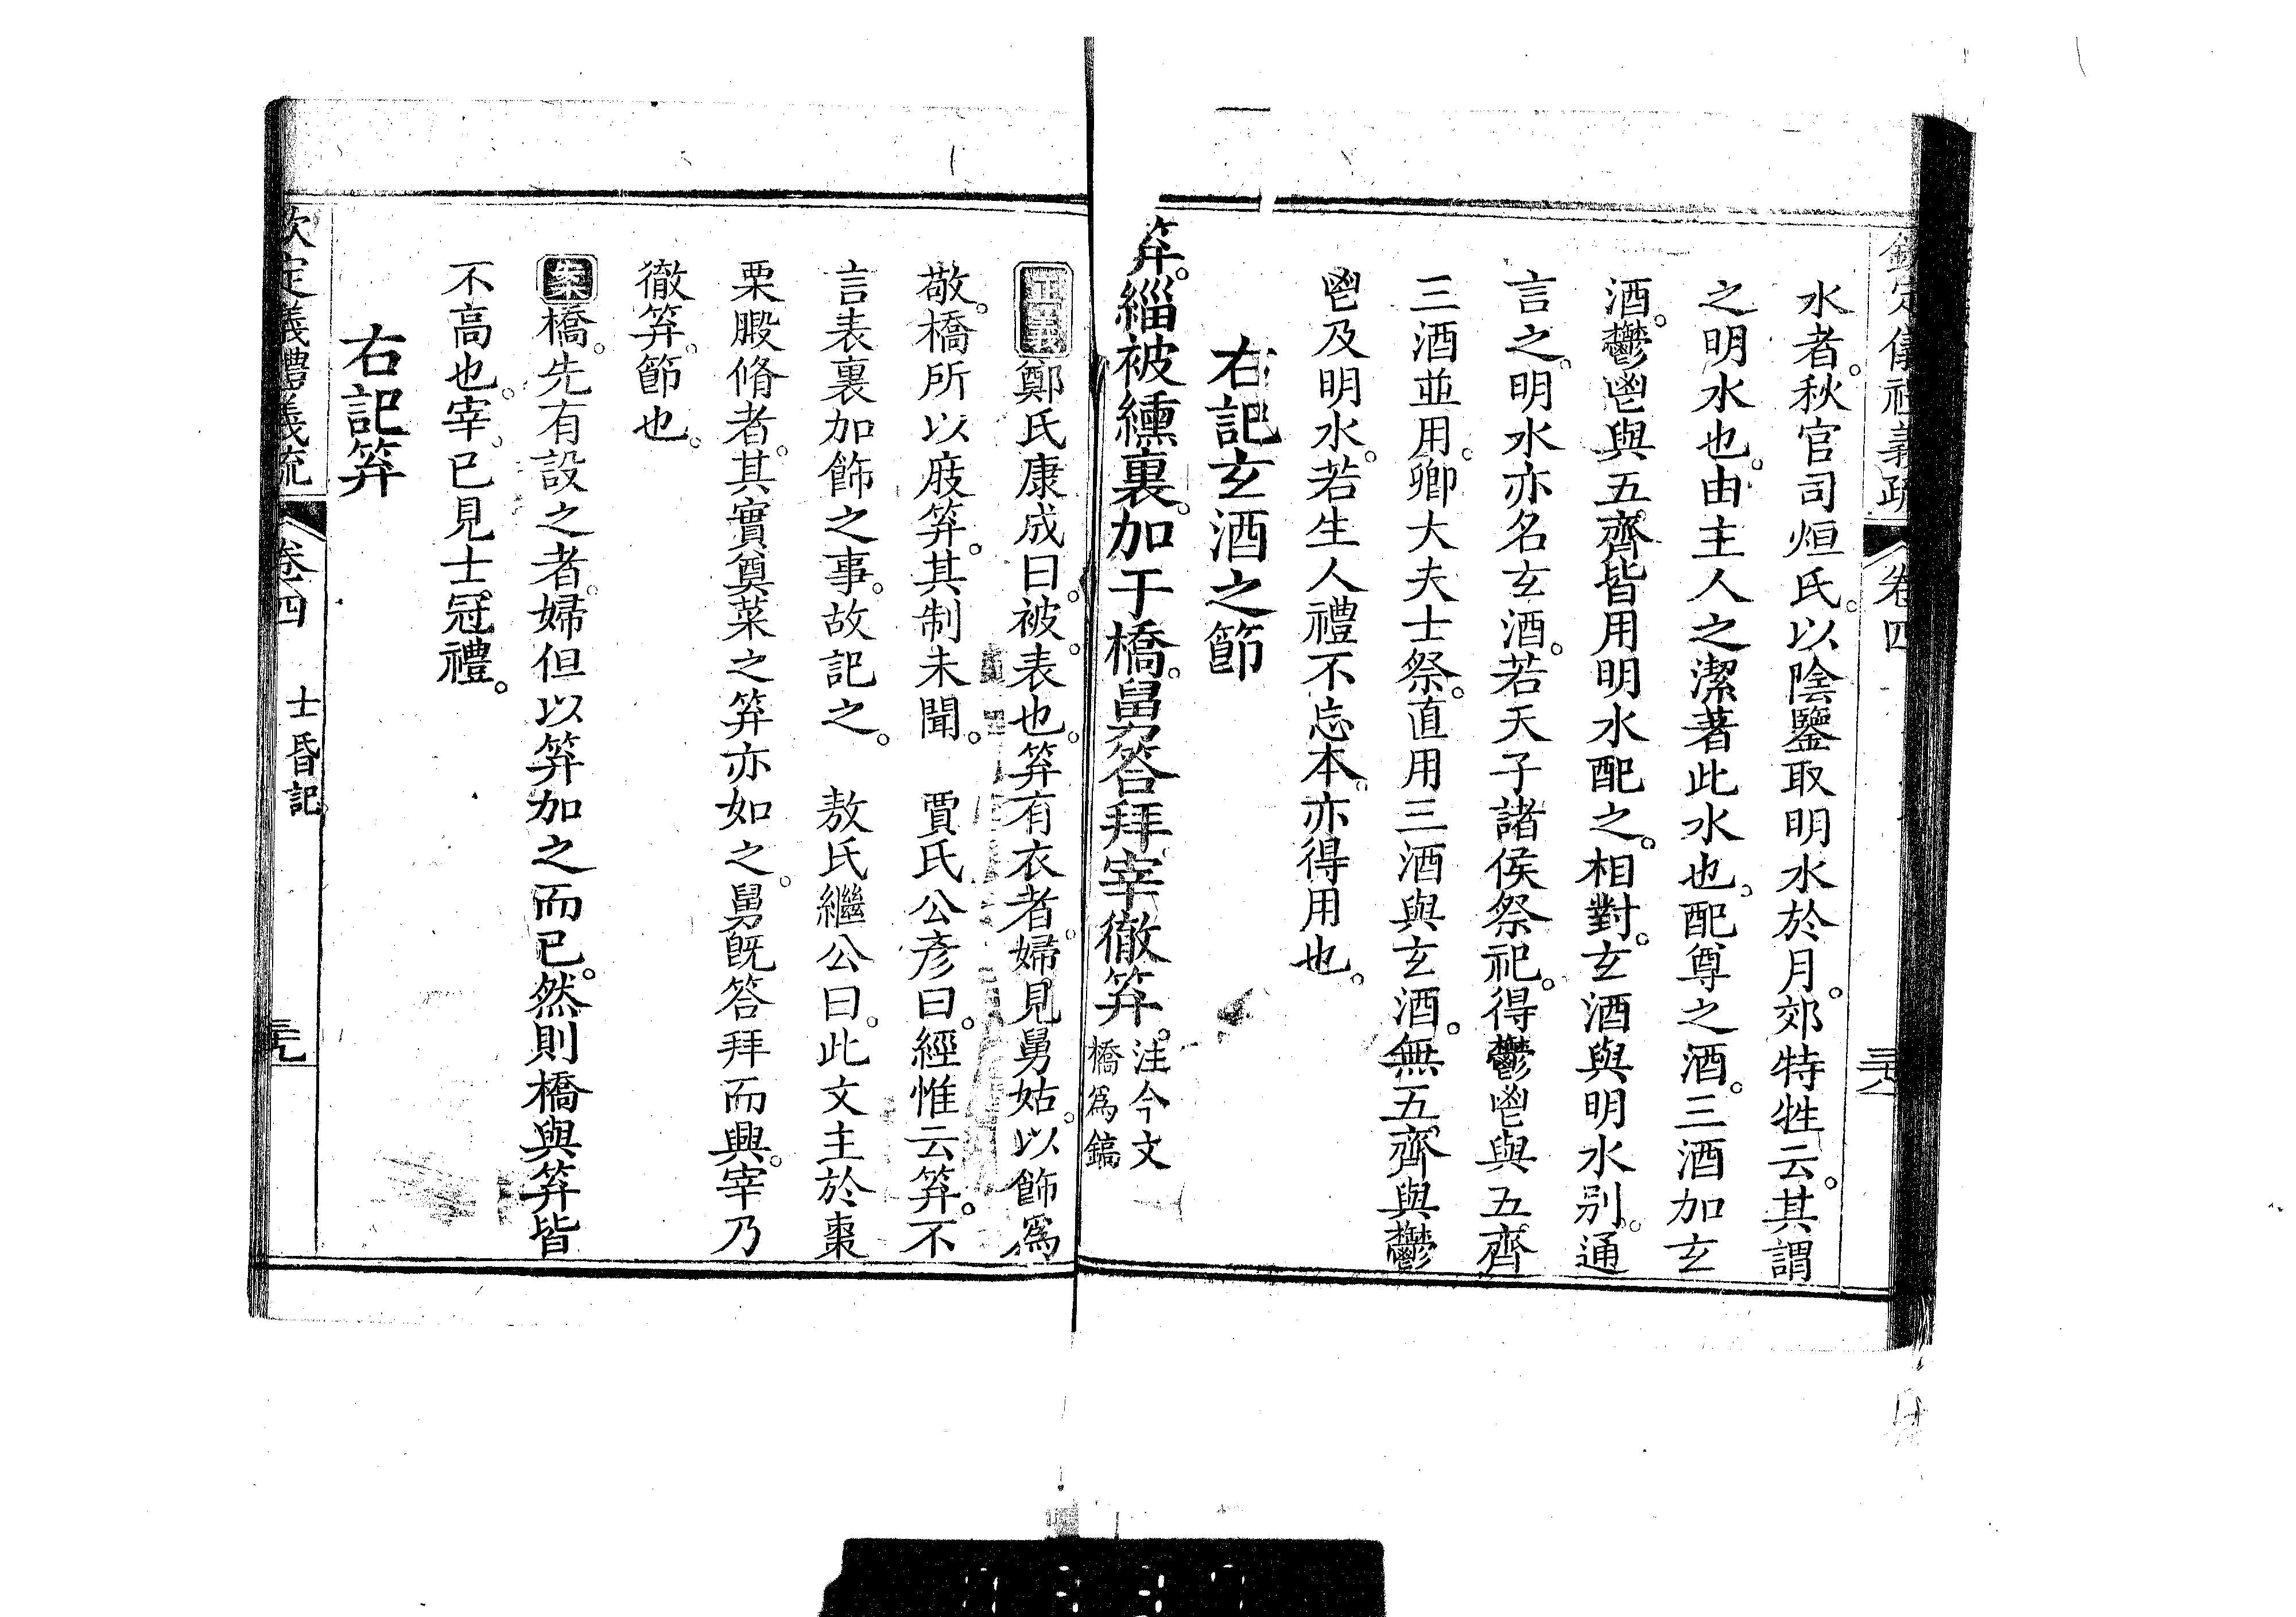 欽定儀禮義疏 卷四
水者。秋官司烜氏。以陰鑒取明水於月。郊特牲云。其謂
之明水也。由主人之潔著此水也。配尊之酒。三酒加玄
酒。鬱鬯與五齊。皆用明水配之。相對。玄酒與明水別。通
言之。明水亦名玄酒。若天子諸侯祭祀。得鬱鬯與五齊
三酒並用。卿大夫士祭。直用三酒與玄酒。無五齊與鬱
鬯及明水。若生人禮不忘本。亦得用也。
右記玄酒之節
笲。緇被纁裏。加于橋。舅答拜。宰徹笲。注今文
橋爲鎬
正義鄭氏康成曰。被。表也。笲有衣者。婦見舅姑。以飾爲
敬。橋所以庪笲。其制未聞。 賈氏公彥曰。經惟云笲。不
言表裏加飾之事。故記之。 敖氏繼公曰。此文主於棗
栗腶脩者。其實奠菜之笲亦如之。舅既答拜而興。宰乃
徹笲。節也。
案橋。先有設之者。婦但以笲加之而已。然則橋與笲皆
不高也。宰。已見士冠禮。
右記笲
欽定儀禮義疏 卷四 士昏記